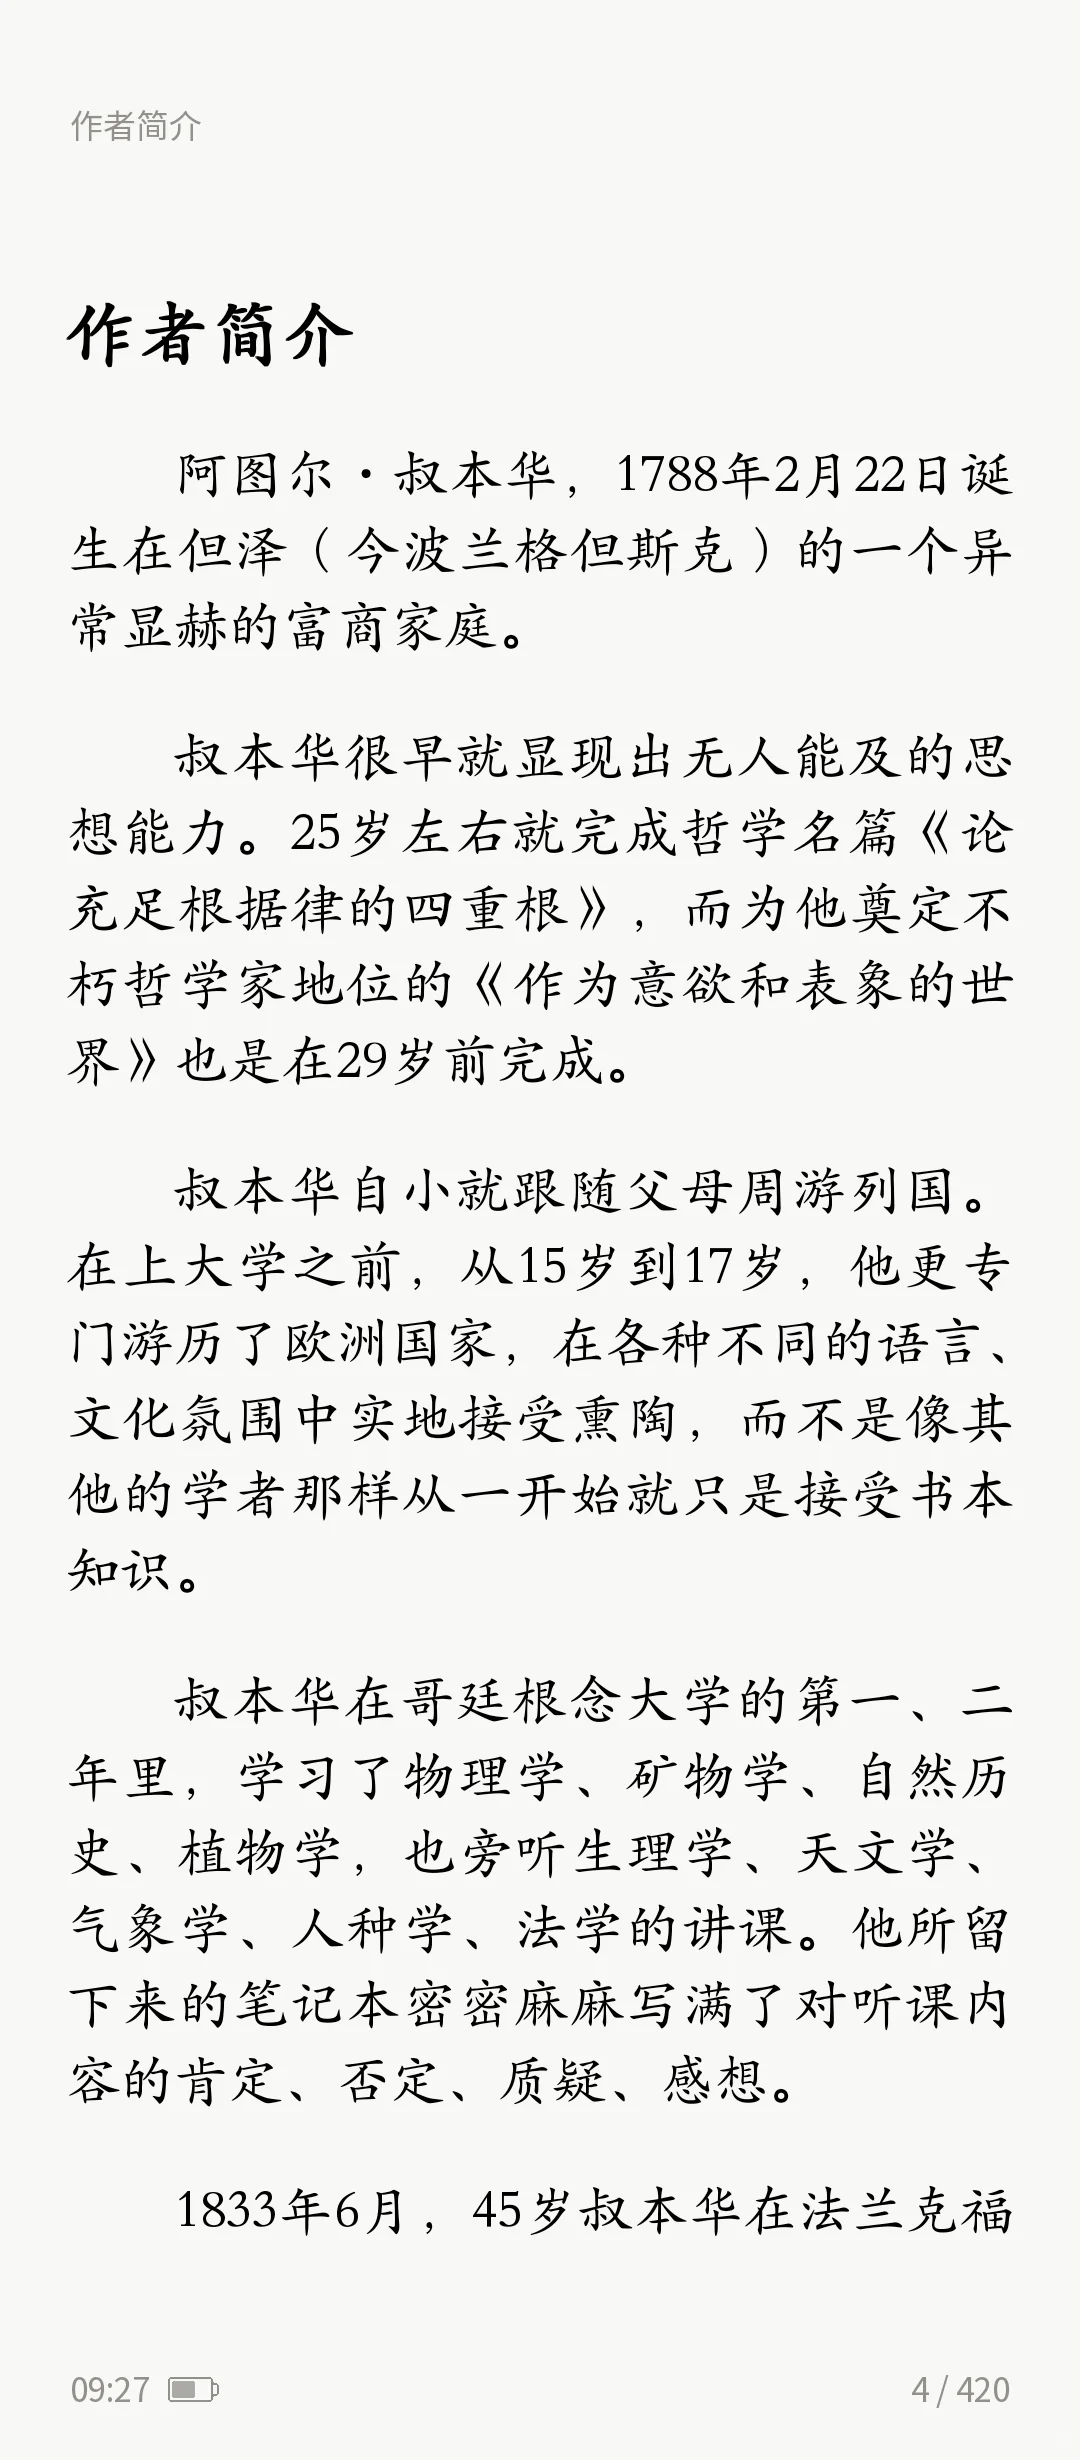 作者简介
作者简介
阿图尔·叔本华，1788年2月22日诞
生在但泽（今波兰格但斯克）的一个异
常显赫的富商家庭。
叔本华很早就显现出无人能及的思
想能力。25岁左右就完成哲学名篇《论
充足根据律的四重根》，而为他奠定不
朽哲学家地位的《作为意欲和表象的世
界》也是在29岁前完成。
叔本华自小就跟随父母周游列国。
在上大学之前，从15岁到17岁，他更专
门游历了欧洲国家，在各种不同的语言、
文化氛围中实地接受熏陶，而不是像其
他的学者那样从一开始就只是接受书本
知识。
叔本华在哥廷根念大学的第一、二
年里，学习了物理学、矿物学、自然历
史、植物学，也旁听生理学、天文学、
气象学、人种学、法学的讲课。他所留
下来的笔记本密密麻麻写满了对听课内
容的肯定、否定、质疑、感想。
1833年6月，45岁叔本华在法兰克福
09:27 4 / 420